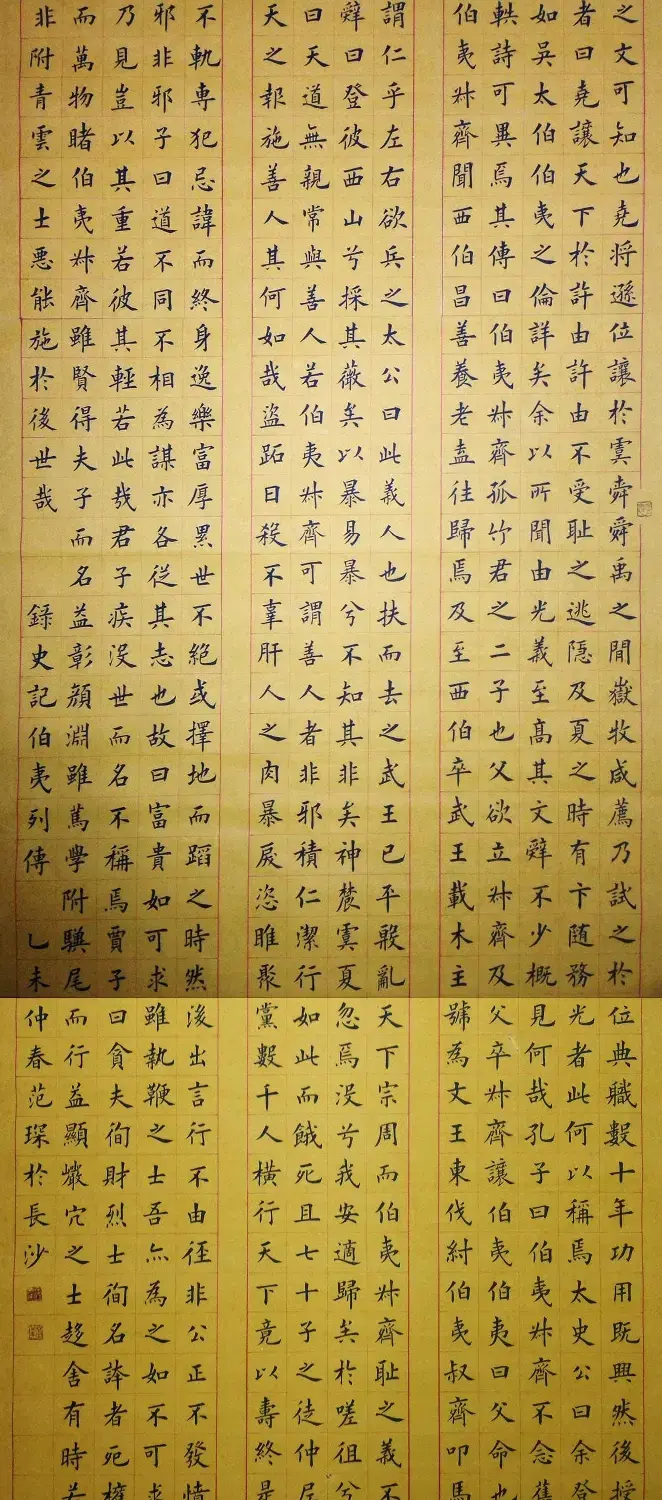 之文可知也堯將遜位讓於虞舜舜禹之間嶽牧咸薦乃試之於位典職數十年功用既興然後授
者曰堯讓天下於許由許由不受恥之逃隱及夏之時有卞随務光者此何以稱焉太史公曰余登
如吳太伯伯夷之倫詳矣余以所聞由光義至高其文辭不少概見何哉孔子曰伯夷叔齊不念舊
軼詩可異焉其傳曰伯夷叔齊孤竹君之二子也父欲立叔齊及父卒叔齊讓伯夷伯夷曰父命也
伯夷叔齊聞西伯昌善養老盍往歸焉及至西伯卒武王載木主號為文王東伐紂伯夷叔齊叩馬
謂仁乎左右欲兵之太公曰此義人也扶而去之武王已平殷亂天下宗周而伯夷叔齊恥之義不
辭曰登彼西山兮採其薇矣以暴易暴兮不知其非矣神農虞夏忽焉沒兮我安適歸矣於嗟徂兮
曰天道無親常與善人若伯夷叔齊可謂善人者非邪積仁潔行如此而餓死且七十子之徒仲尼
天之報施善人其何如哉盜跖日殺不辜肝人之肉暴戾恣睢聚黨數千人橫行天下竟以壽終是
不軌専犯忌諱而終身逸樂富厚累世不絕或擇地而蹈之時然後出言行不由徑非公正不發憤
邪非邪子曰道不同不相為謀亦各從其志也故曰富貴如可求雖執鞭之士吾亦為之如不可求
乃見豈以其重若彼其輕若此哉君子疾沒世而名不稱焉賈子曰貪夫徇財烈士徇名誇者死權
而萬物睹伯夷叔齊雖賢得夫子而名益彰顏淵雖篤學附驥尾而行益顯巖穴之士趨舍有時若
非附青雲之士惡能施於後世哉 錄史記伯夷列傳 乙未仲春范琛於長沙